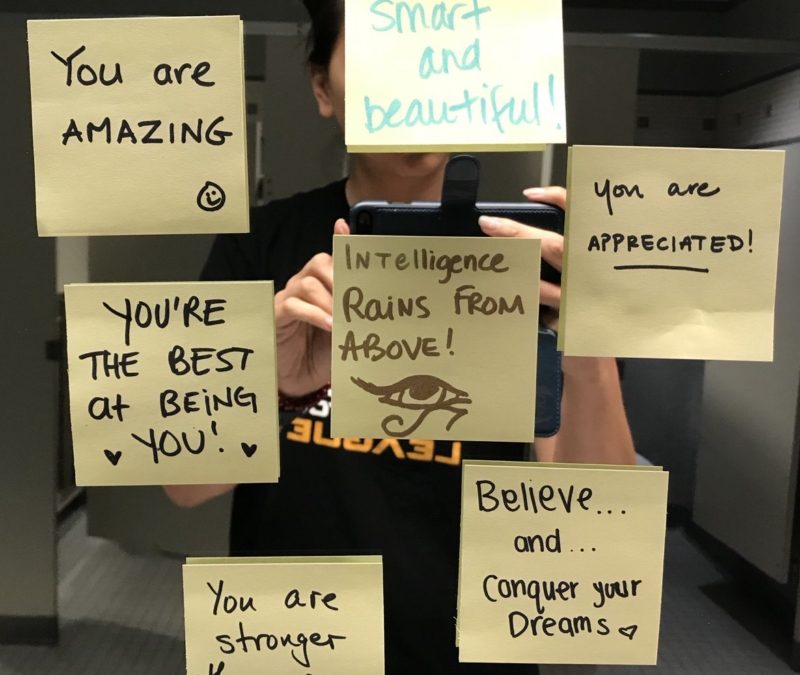 You are
AMAZING
Smart
and
beautiful!
you are
APPRECIATED!
INTelligence
RAiNS FROM
ABOVE!
YOU'RE
THE BEST
at BEiNG
YOU!
Believe...
and...
Conquer your
Dreams
You are
stronger